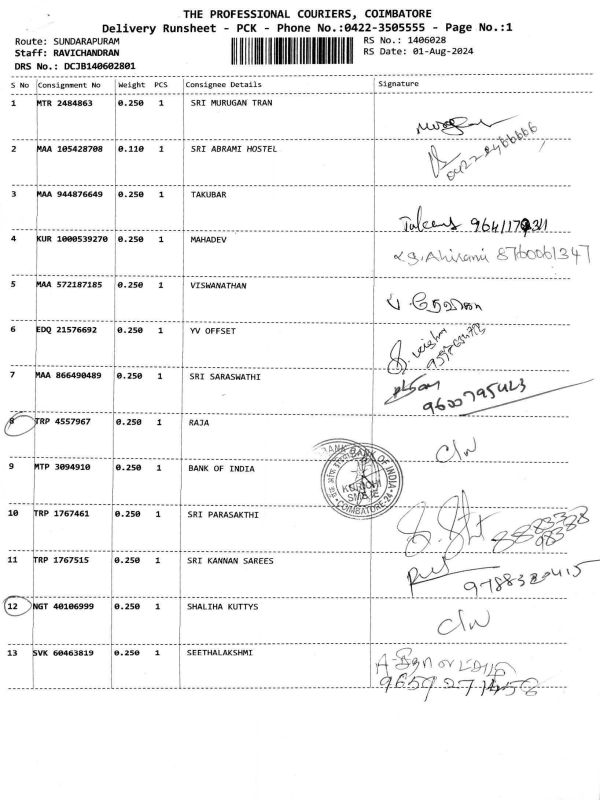 THE PROFESSIONAL COURIERS, COIMBATORE
Delivery Runsheet - PCK - Phone No.:0422-3505555 - Page No.:1
Route: SUNDARAPURAM RS No.: 1406028
Staff: RAVICHANDRAN RS Date: 01-Aug-2024
DRS No.: DCJB140602801
S No Consignment No Weight PCS Consignee Details Signature
1 MTR 2484863 0.250 1 SRI MURUGAN TRAN
2 MAA 105428708 0.110 1 SRI ABRAMI HOSTEL
3 MAA 944876649 0.250 1 TAKUBAR
4 KUR 1000539270 0.250 1 MAHADEV
Ahirami 8760061347
5 MAA 572187185 0.250 1 VISWANATHAN
6 EDQ 21576692 0.250 1 YV OFFSET
7 MAA 866490489 0.250 1 SRI SARASWATHI
9600795423
8 TRP 4557967 0.250 1 RAJA
C/N
9 MTP 3094910 0.250 1 BANK OF INDIA
BANK OF INDIA
COIMBATORE-24
10 TRP 1767461 0.250 1 SRI PARASAKTHI
11 TRP 1767515 0.250 1 SRI KANNAN SAREES
9788320415
12 NGT 40106999 0.250 1 SHALIHA KUTTYS
C/N
13 SVK 60463819 0.250 1 SEETHALAKSHMI